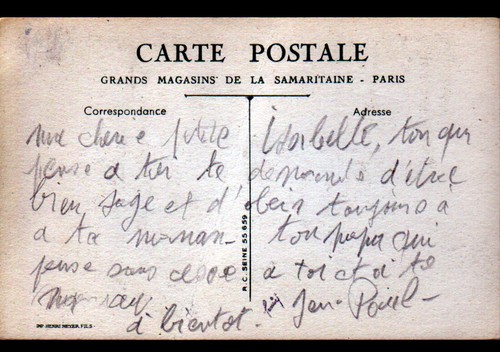 CARTE POSTALE
GRANDS MAGASINS DE LA SAMARITAINE - PARIS
Correspondance
Adresse
ma cherie petite Isabelle, ton
pense a toi te demande d'être
bien sage et d'obeir toujours a
a ta maman - ton papa qui
pense sans cesse a toi et a ta
maman
à bientot. Jean-
R.C. SEINE 55 659
IMP. HENRI MEYER. FILS-